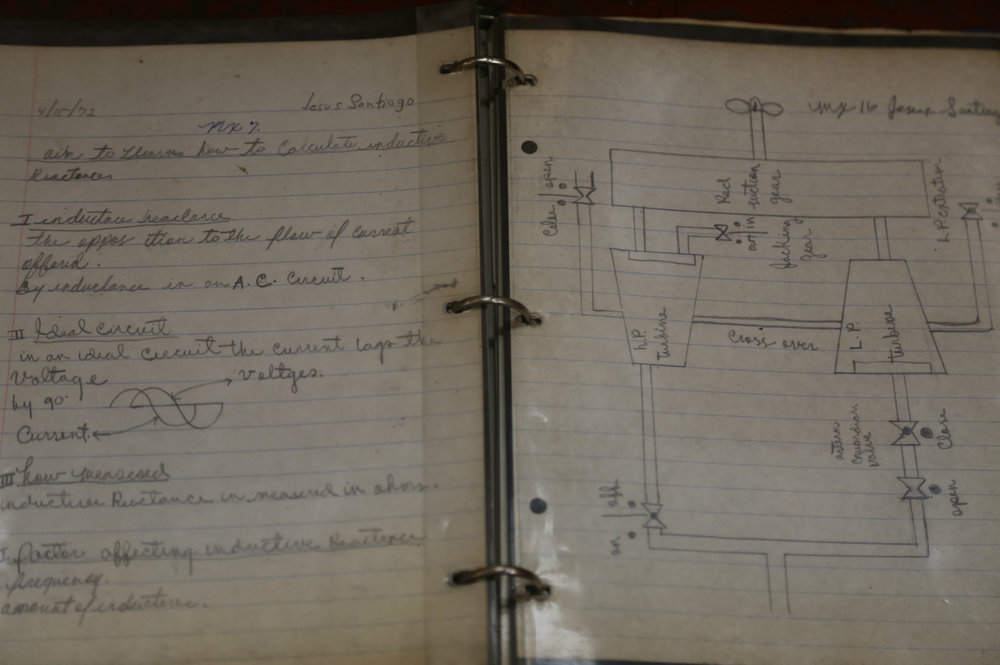 4/5/72
Jesus Santiago
MX 7.
aim to Learn how to Calculate inductive
Reactances
I inductive reactance
the oppos ition to the flow of current
offered.
By inductance in an A.C. Circuit.
II Ideal Circuit
in an ideal circuit the current lags the
Voltage
by 90.
voltges.
Current
III how measered
inductive Reactance in measered in ohms.
factors affecting inductive Reactance
frequency.
amount of inductive.
MX 16 Jesus
Red
suction
gear
Close open
in
Jacking
gear
L.P. extraction
H.P.
turbine
Cross over
L.P.
turbine
astern
Guardian
valve
Close
open
on off